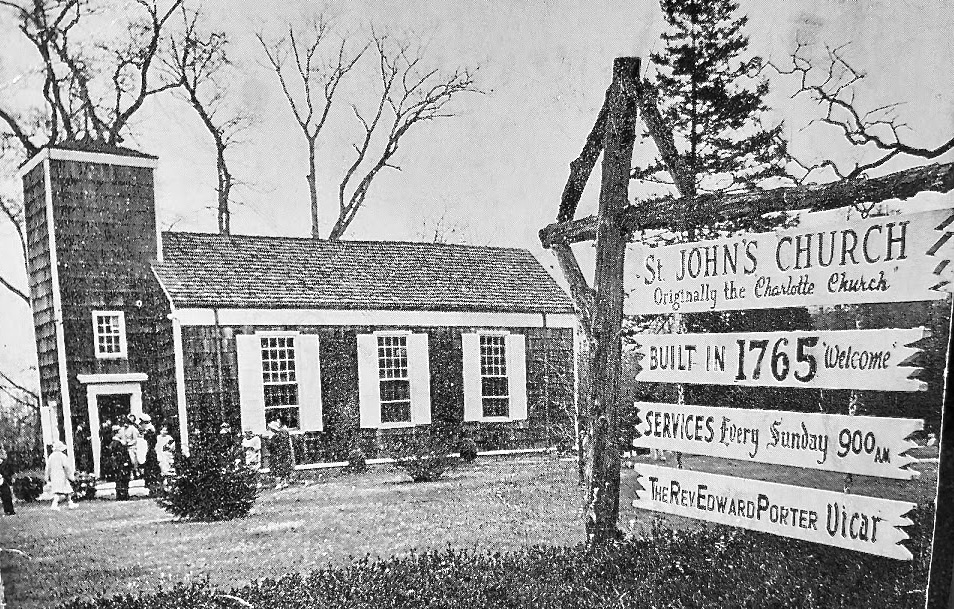 St. JOHN'S CHURCH
Originally the "Charlotte Church"
BUILT IN 1765 "Welcome"
SERVICES Every Sunday 900 AM
THE REV EDWARD PORTER Vicar